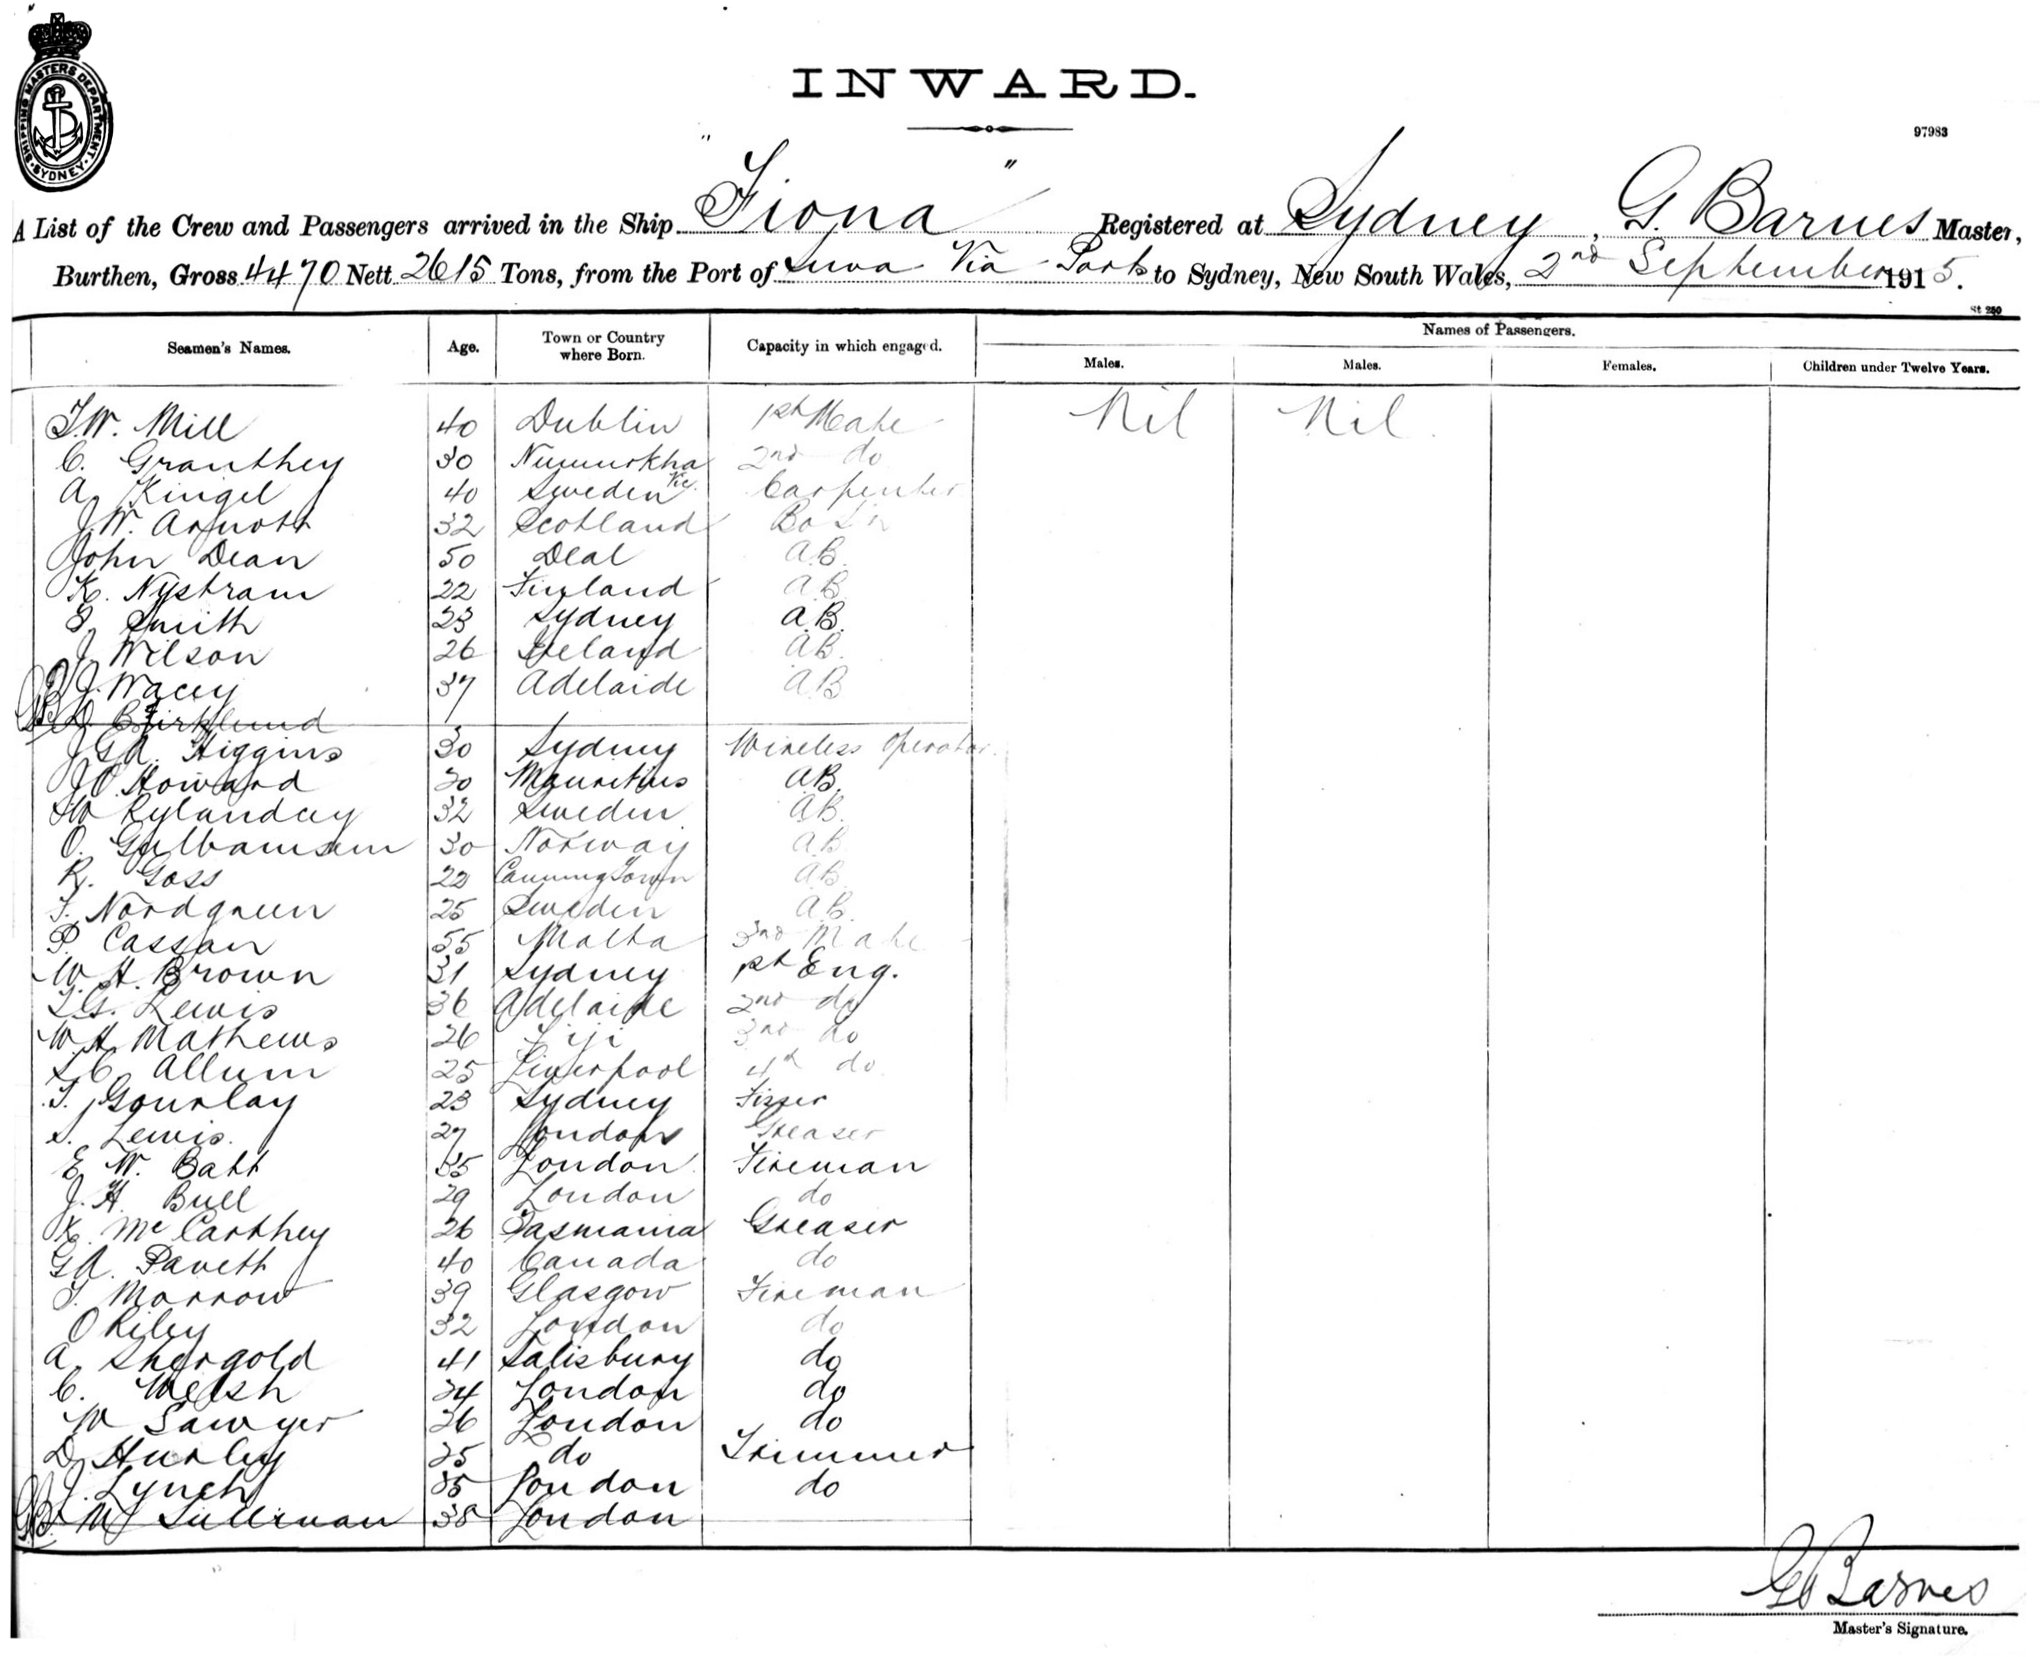 SHIPPING MASTERS DEPARTMENT · SYDNEY ·
INWARD.
97983
A List of the Crew and Passengers arrived in the Ship "Fiona" Registered at Sydney, G. Barnes Master,
Burthen, Gross 4470 Nett 2615 Tons, from the Port of Suva Via Ports to Sydney, New South Wales, 2nd September 1915.
St 250
Seamen's Names. Age. Town or Country where Born. Capacity in which engaged. Names of Passengers.
Males. Males. Females. Children under Twelve Years.
T.W. Mill 40 Dublin 1st Mate Nil Nil.
C. Granthey 30 Numurkha Vic. 2nd do
A. Kingel 40 Sweden Carpenter
J.W. Arnott 32 Scotland Bo S'n
John Dean 50 Deal A.B.
K. Nystram 22 Finland A.B.
S. Smith 23 Sydney A.B.
J. Wilson 26 Ireland A.B.
J. Wacey 37 Adelaide A.B
GB D.
J.G.A. Higgins 30 Sydney Wireless Operator.
J.O. Howard 30 Mauritius A.B.
W Rylandey 32 Sweden A.B.
O. 30 Norway A.B.
R. Goss 22 Canning Town A.B.
T. Nordgreen 25 Sweden A.B.
P. Cassan 55 Malta 3rd Mate
W. H. Brown 31 Sydney 1st Eng.
T.G. Lewis 36 Adelaide 2nd do
W.H. Mathews 26 Fiji 3rd do
S.C. Allum 25 Liverpool 4th do
T. Gourlay 23 Sydney
S. Lewis. 27 London Greaser
E. W. Batt 35 London Fireman
J. H. Bull 29 London do
K. McCarthey 26 Tasmania Greaser
G.A. Pavett 40 Canada do
T. Morrow 39 Glasgow Fireman
O Riley 32 London do
A. Shergold 41 Salisbury do
C. Welsh 34 London do
W Sawyer 26 London do
D. Hurley 35 do Trimmer
J. Lynch 35 London do
GB M Sullivan 38 London
G Barnes
Master's Signature.